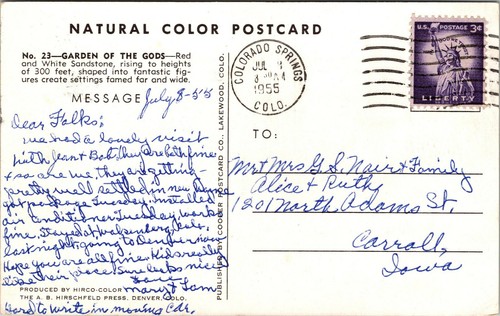 NATURAL COLOR POSTCARD
No. 23—GARDEN OF THE GODS—Red
and White Sandstone, rising to heights
of 300 feet, shaped into fantastic fig-
ures create settings famed far and wide.
MESSAGE July 8-55
Dear Folks:
We had a lovely visit
with Jean & Bob. They are both fine
& so are we. They are getting
pretty well settled in new home
got package Tuesday. Installed
air conditioner Tuesday, works
fine. Stayed at Walsenburg, Colo.
last night, going to Denver now.
Hope you are all fine. Kids really
like their place. Sure looks nice
Love
Mary & Tom
Hard to write in moving car.
PRODUCED BY HIRCO-COLOR
THE A. B. HIRSCHFELD PRESS, DENVER, COLO.
PUBLISHED BY COOPER POSTCARD CO., LAKEWOOD, COLO.
COLORADO SPRINGS
JUL
1955
COLO.
U.S. POSTAGE 3¢
IN GOD WE TRUST
LIBERTY
TO:
Mr & Mrs G. S. Nair & Family
Alice & Ruthy
1201 North Adams St.
Carroll,
Iowa